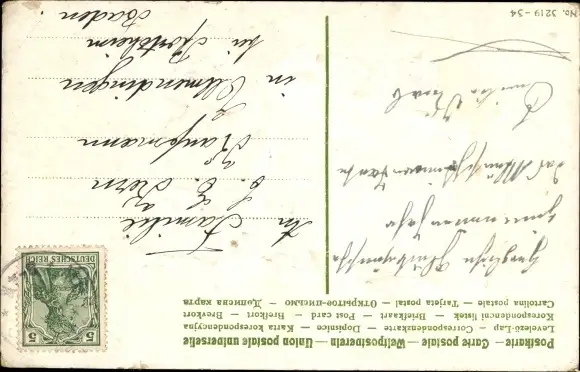 Postkarte — Carte postale — Weltpostverein — Union postale universelle
Levelező-Lap — Correspondenzkarte — Dopisnice — Karta korespondencyjna
Korespondenční lístek — Briefkaart — Post card — Brefkort — Brevkort
Cartolina postale — Tarjeta postal — Открытое письмо — Дописна карта
Herzlichen Glückwunsch
zum neuen Jahr
Familie
5 5
DEUTSCHES REICH
An
Familie
C. E. Kern
Kaufmann
in Ellmendingen
bei Pforzheim
Baden.
No. 3219-34